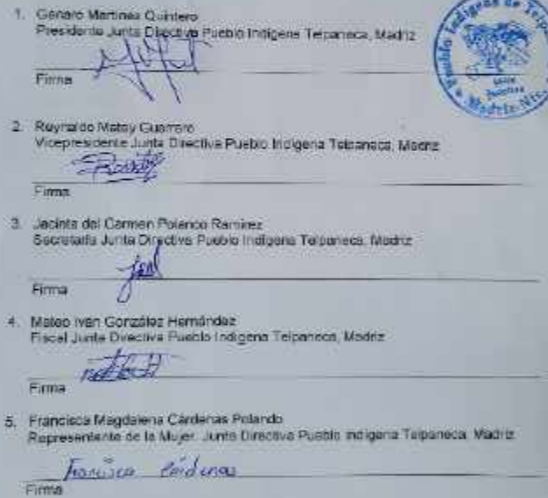 1. Genaro Martinez Quintero
Presidente Junta Directiva Pueblo Indigena Telpaneca, Madriz
Firma
2. Reynaldo Matey Guerrero
Vicepresidente Junta Directiva Pueblo Indigena Telpaneca, Madriz
Firma
3. Jacinta del Carmen Polanco Ramirez
Secretaria Junta Directiva Pueblo Indigena Telpaneca, Madriz
Firma
4. Mateo Iván González Hernández
Fiscal Junta Directiva Pueblo Indigena Telpaneca, Madriz
Firma
5. Francisca Magdalena Cárdenas Polando
Representante de la Mujer. Junta Directiva Pueblo Indigena Telpaneca, Madriz
Francisca Cárdenas
Firma
Pueblo Indigena de
Madriz, Nic.